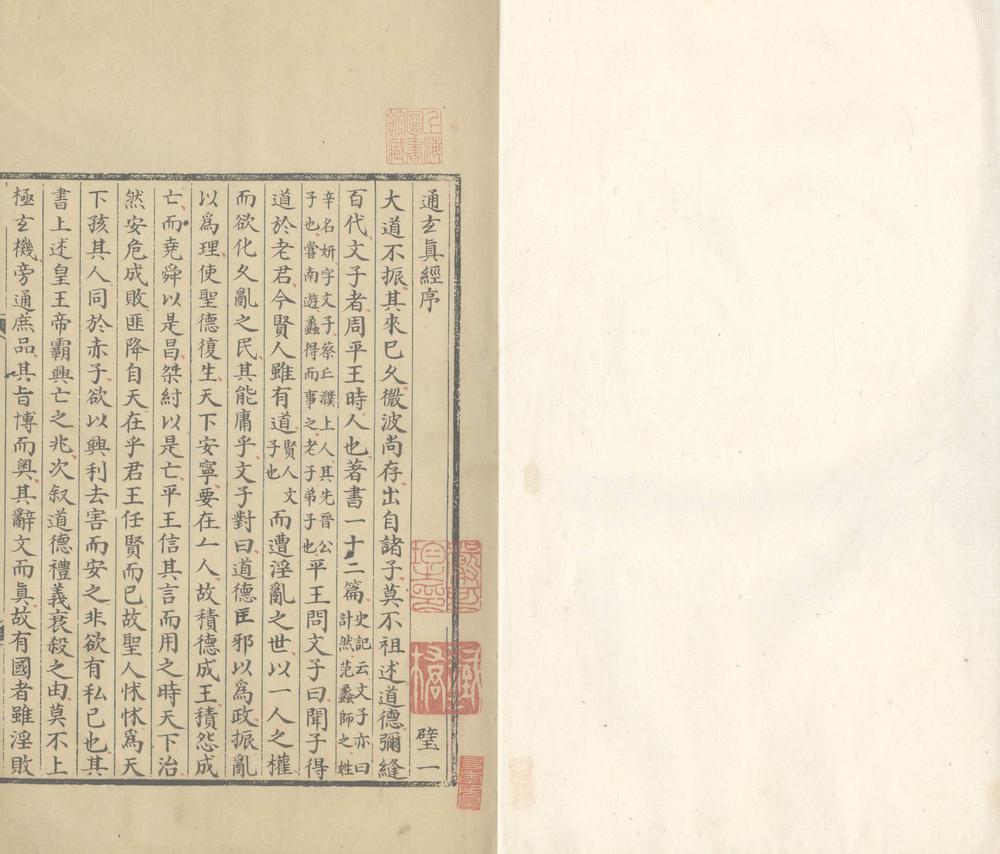 通玄真經序 璧一
大道不振其來已久微波尚存出自諸子莫不祖述道德彌縫
百代文子者周平王時人也著書一十二篇史記云文子亦曰計然范蠡師之姓
辛名妍字文子蔡丘濮上人其先晉公子也嘗南遊蠡得而事之老子弟子也平王問文子曰聞子得
道於老君今賢人雖有道賢人文子也而遭淫亂之世以一人之權
而欲化久亂之民其能庸乎文子對曰道德匡邪以爲政振亂
以爲理使聖德復生天下安寧要在一人故積德成王積怨成
亡而堯舜以是昌桀紂以是亡平王信其言而用之時天下治
然安危成敗匪降自天在乎君王任賢而已故聖人怵怵爲天
下孩其人同於赤子欲以興利去害而安之非欲有私己也其
書上述皇王帝霸興亡之兆次叙道德禮義衰殺之由莫不上
極玄機旁通庶品其旨博而奧其辭文而真故有國者雖淫敗
上海圖書館藏